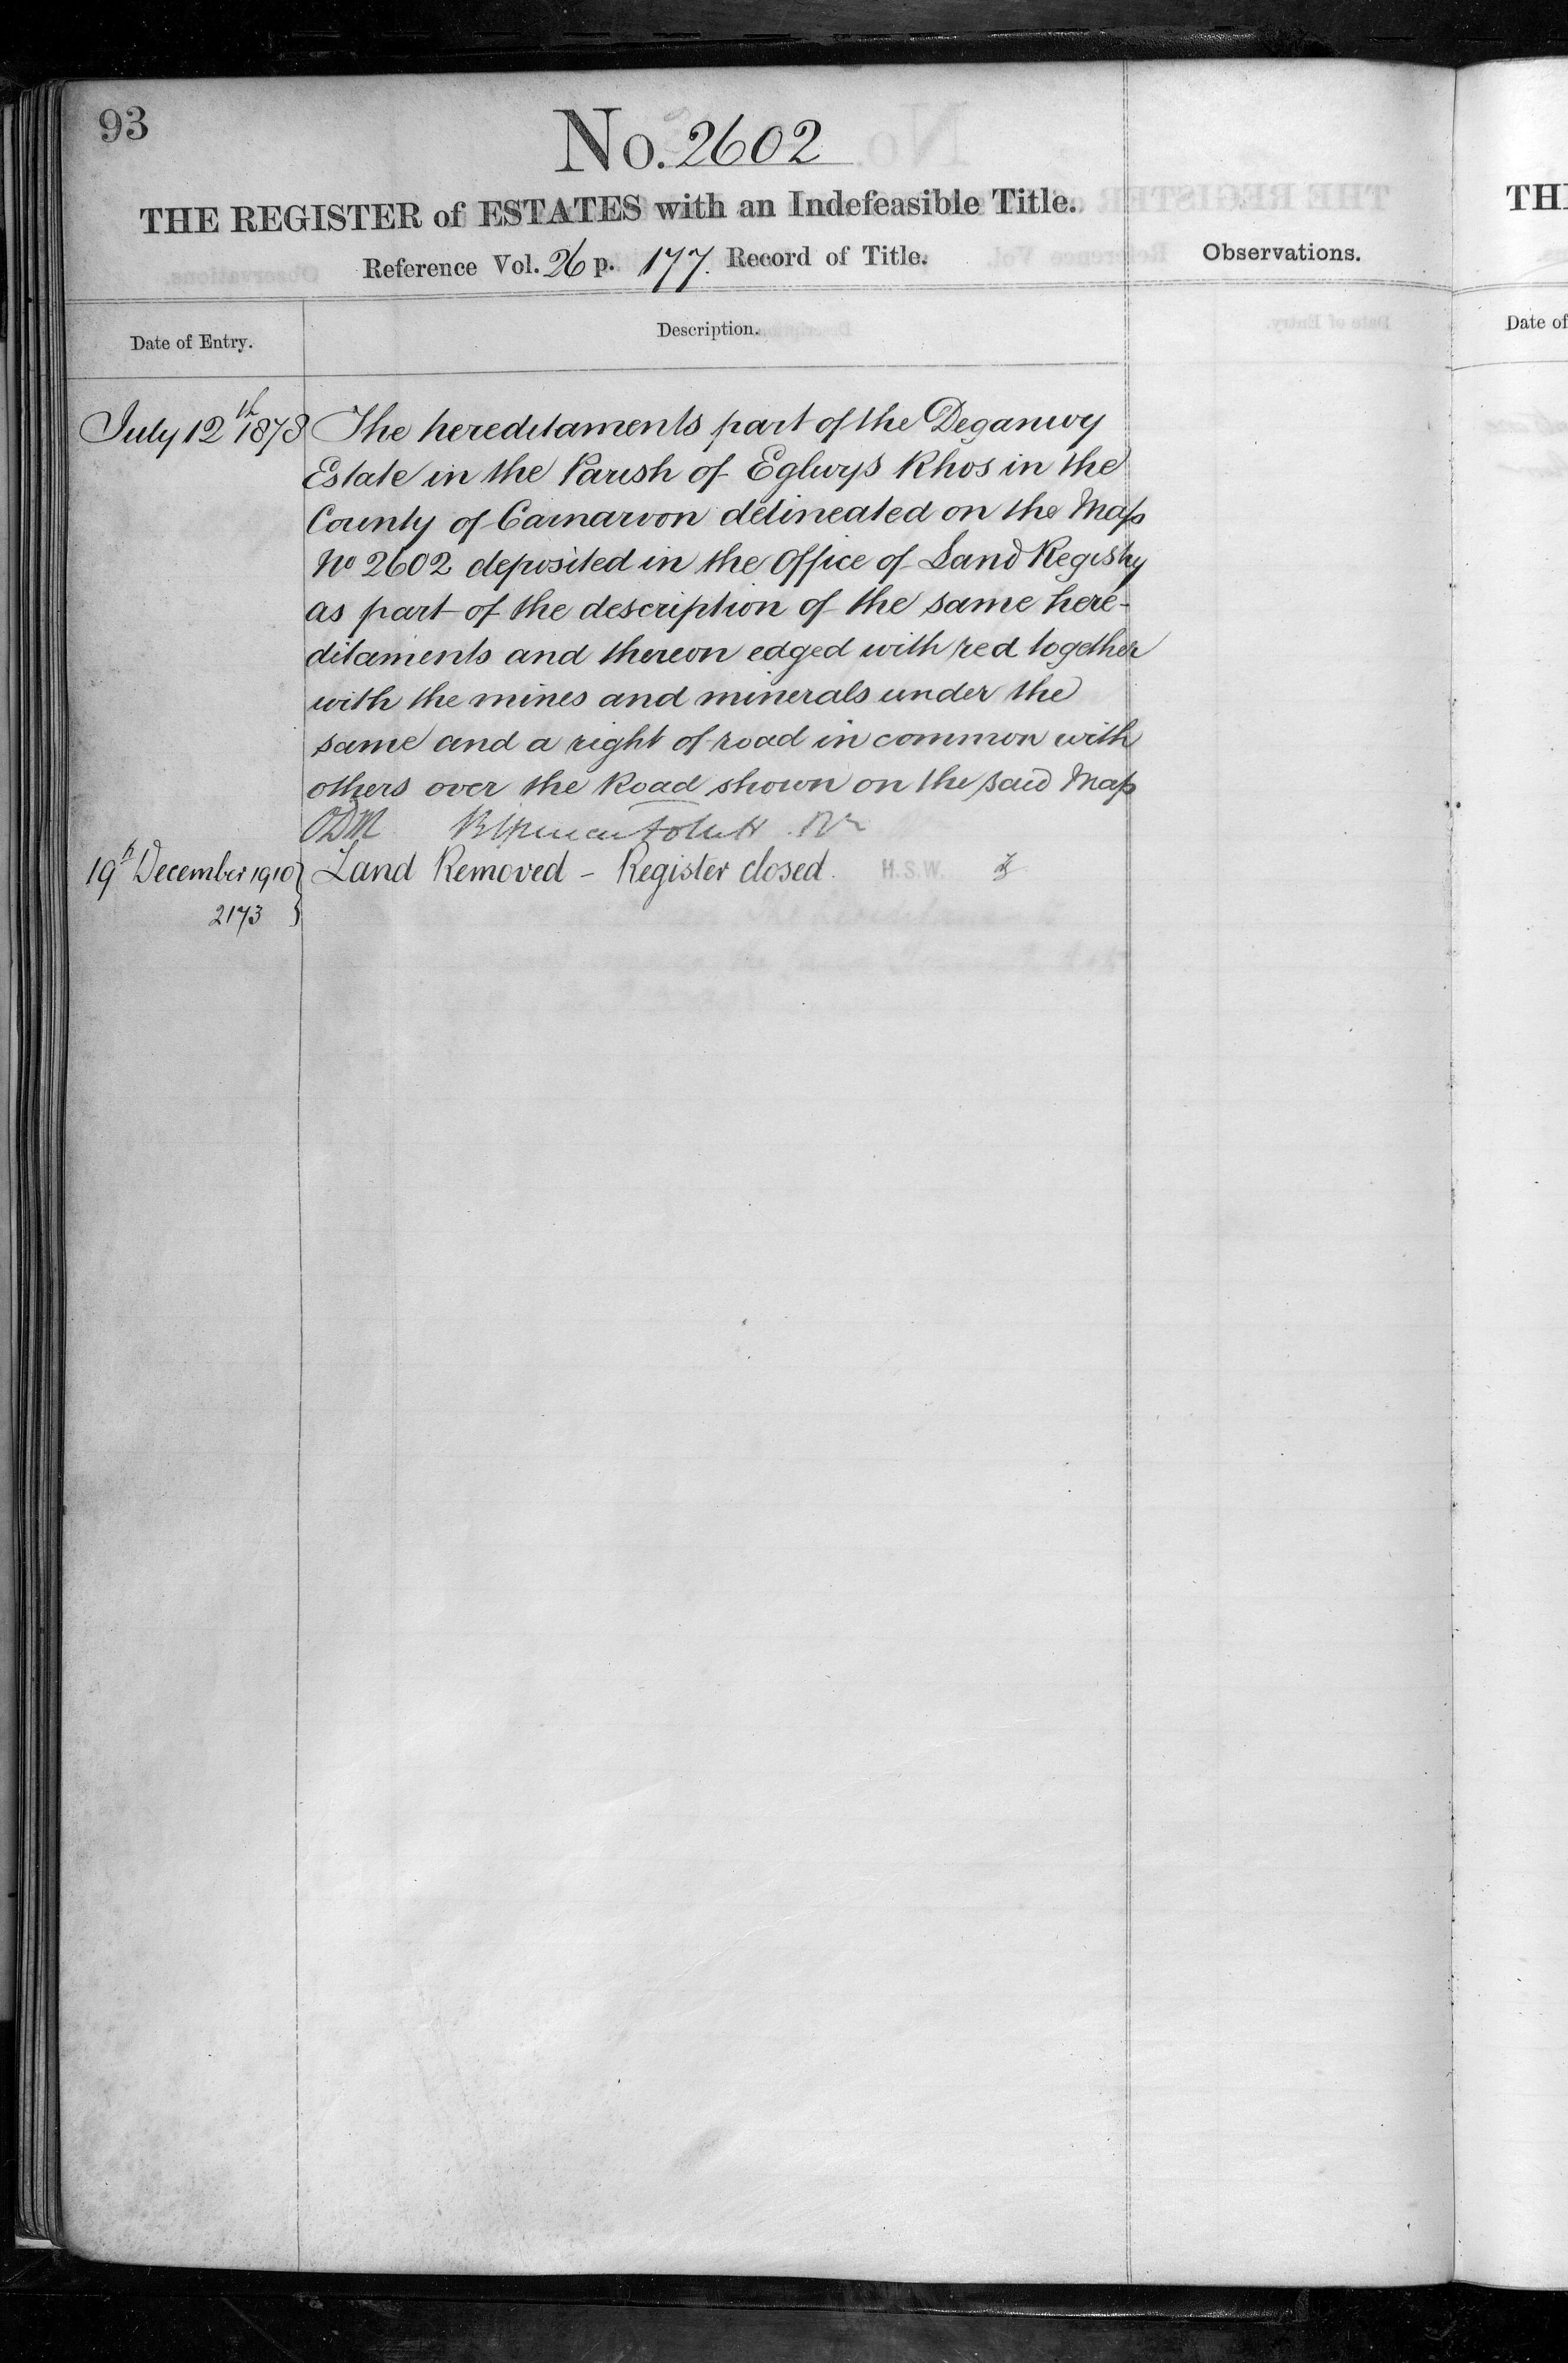 93
No. 2602
THE REGISTER of ESTATES with an Indefeasible Title.
Reference Vol. 26 p. 177. Record of Title.
Observations.
Date of Entry.
Description.
July 12th 1878 The hereditaments part of the Deganwy
Estate in the Parish of Eglwys Rhos in the
County of Carnarvon delineated on the Map
No 2602 deposited in the Office of Land Registry
as part of the description of the same here-
ditaments and thereon edged with red together
with the mines and minerals under the
same and a right of road in common with
others over the Road shown on the said Map
ODM
19th December 1910 Land Removed - Register closed. H.S.W.
2173
TH
Date of